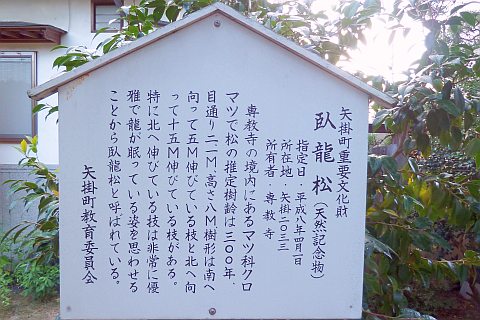 矢掛町重要文化財
臥龍松(天然記念物)
指定日・平成八年四月一日
所在地・矢掛二〇三三
所有者・専教寺
専教寺の境内にあるマツ科クロ
マツで松の推定樹齢は三〇〇年、
目通り二・二M、高さ八M樹形は南へ
向って五M伸びている枝と北へ向
って十五M伸びている枝がある。
特に北へ伸びている枝は非常に優
雅で龍が眠っている姿を思わせる
ことから臥龍松と呼ばれている。
矢掛町教育委員会